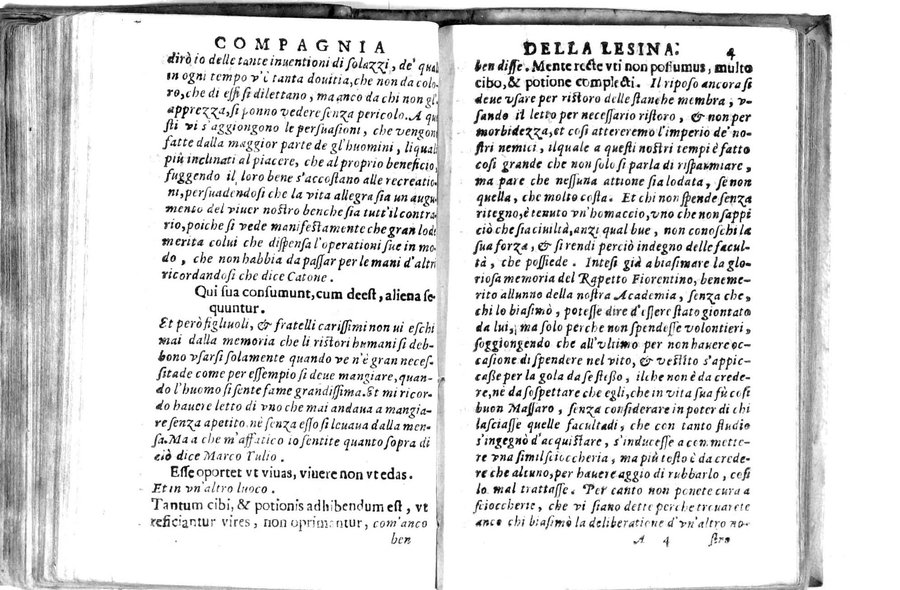 COMPAGNIA
dirò io delle tante inuentioni di solazzi, de' qual
in ogni tempo v'è tanta douitia, che non da colo-
ro, che di essi si dilettano, ma anco da chi non gl'
apprezza, si ponno vedere senza pericolo. A que
sti vi s'aggiongono le persuasioni, che vengono
fatte dalla maggior parte de gl'huomini, liquali
più inclinati al piacere, che al proprio beneficio,
fuggendo il loro bene s'accostano alle recreatio-
ni, persuadendosi che la vita allegra sia un augu-
mento del viuer nostro benche sia tutt'il contra-
rio, poiche si vede manifestamente che gran lode
merita colui che dispensa l'operationi sue in mo-
do, che non habbia da passar per le mani d'altri
ricordandosi che dice Catone.
Qui sua consumunt, cum deest, aliena se
quuntur.
Et però figliuoli, & fratelli carissimi non ui eschi
mai dalla memoria che li ristori humani si deb-
bono vsarsi solamente quando ve n'è gran neces-
sitade come per essempio si deue mangiare, quan-
do l'huomo si sente fame grandissima. Et mi ricor-
do hauere letto di vno che mai andaua a mangia-
re senza apetito, nè senza esso si leuaua dalla men-
sa. Ma a che m'affatico io sentite quanto sopra di
ciò dice Marco Tulio.
Esse oportet vt viuas, viuere non vt edas.
Et in vn'altro luoco.
Tantum cibi, & potionis adhibendum est, vt
reficiantur vires, non oprimantur, com'anco
ben
DELLA LESINA.
4
ben disse. Mente recte vti non possumus, multo
cibo, & potione complecti. Il riposo ancora si
deue vsare per ristoro delle stanche membra, v-
sando il letto per necessario ristoro, & non per
morbidezza, et così attereremo l'imperio de' no-
stri nemici, ilquale a questi nostri tempi è fatto
così grande che non solo si parla di risparmiare,
ma pare che nessuna attione sia lodata, se non
quella, che molto costa. Et chi non spende senza
ritegno, è tenuto vn'homaccio, vno che non sappi
ciò che sia ciuiltà, anzi qual bue, non conoschi la
sua forza, & si rendi perciò indegno delle facul-
tà, che possiede. Intesi già a biasimare la glo-
riosa memoria del Rapetto Fiorentino, beneme-
rito allunno della nostra Academia, senza che,
chi lo biasimò, potesse dire d'essere stato giontato
da lui, ma solo perche non spendesse volontieri,
soggiongendo che all'vltimo per non hauere oc-
casione di spendere nel vito, & vestito s'appic-
casse per la gola da se stesso, il che non è da crede-
re, nè da sospettare che egli, che in vita sua fù così
buon Massaro, senza considerare in poter di chi
lasciasse quelle facultadi, che con tanto studio
s'ingegnò d'acquistare, s'inducesse a commette-
re vna simil scioccheria, ma più tosto è da crede-
re che alcuno, per hauere aggio di rubbarlo, così
lo mal trattasse. Per tanto non ponete cura a
scioccherie, che vi siano dette perche trouarete
anco chi biasimò la deliberatione d'vn'altro no-
A 4 stro